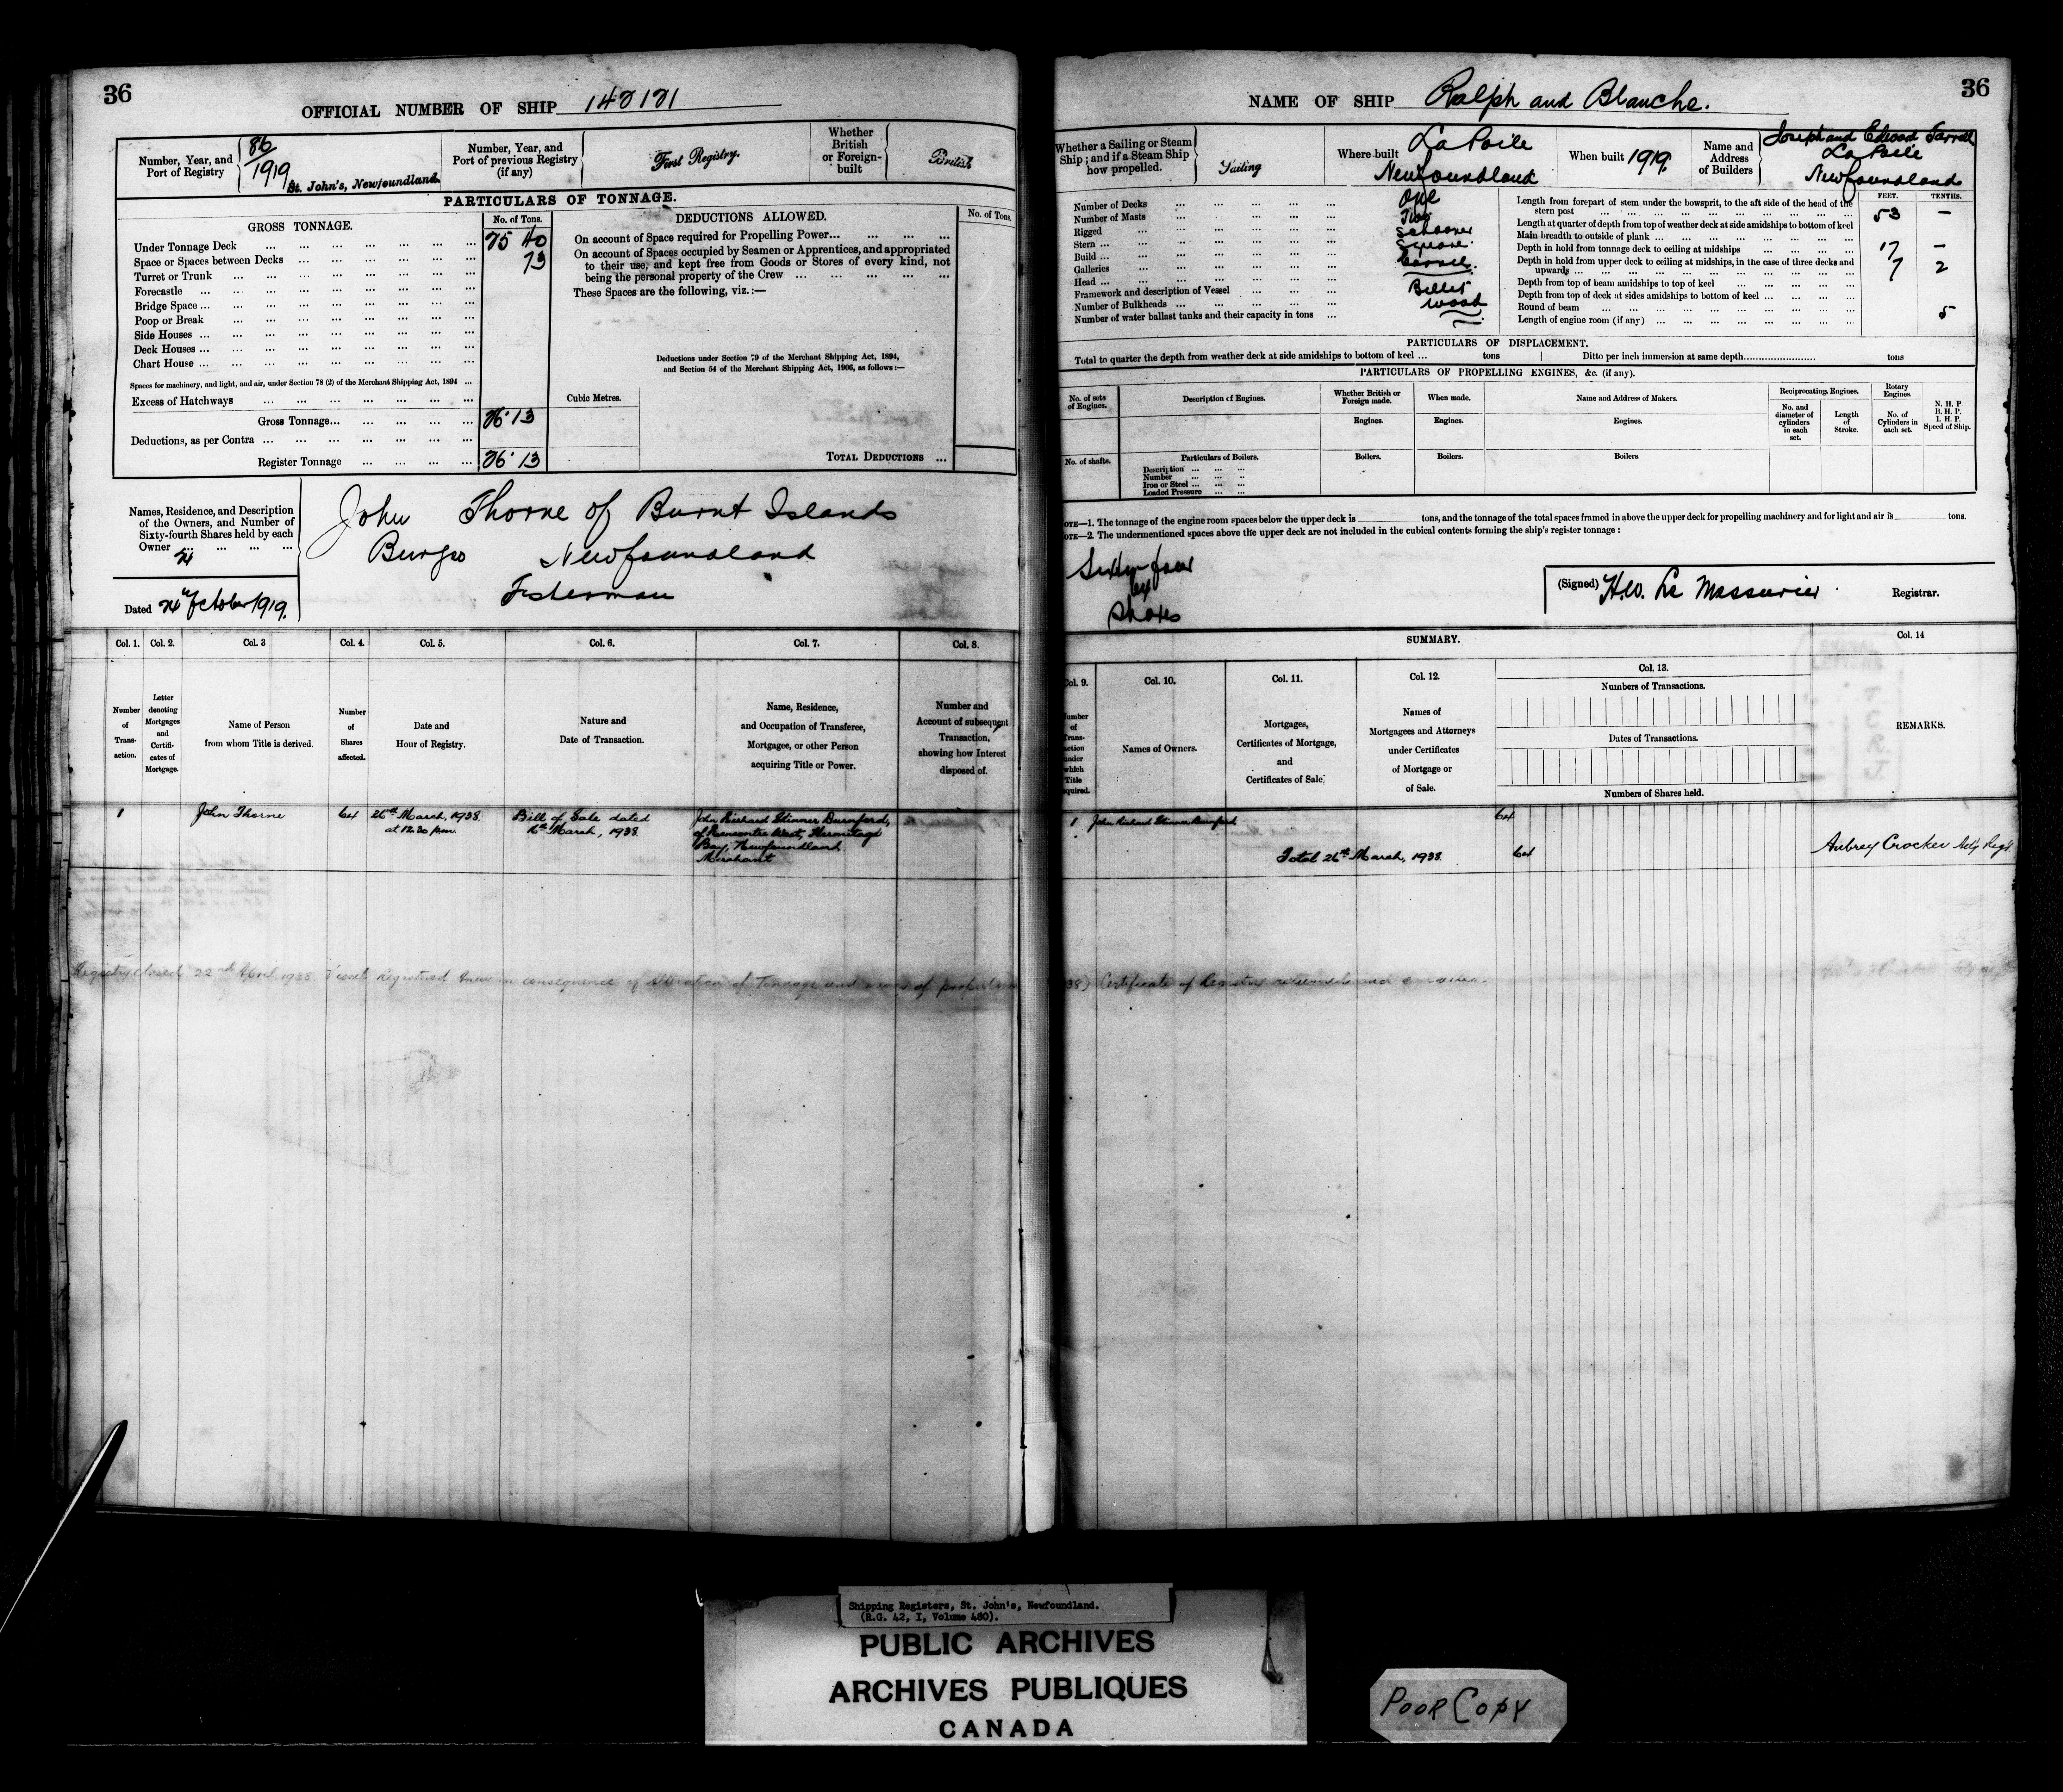 36
OFFICIAL NUMBER OF SHIP
Number, Year, and Port of Registry
86
1919
St. John's, Newfoundland.
Number, Year, and Port of previous Registry (if any)
First Registry.
Whether British or Foreign-built
British
PARTICULARS OF TONNAGE.
GROSS TONNAGE.
No. of Tons.
Under Tonnage Deck
Space or Spaces between Decks
Turret or Trunk
Forecastle
Bridge Space
Poop or Break
Side Houses
Deck Houses
Chart House
Spaces for machinery, and light, and air, under Section 78 (2) of the Merchant Shipping Act, 1894
Excess of Hatchways
Gross Tonnage
Deductions, as per Contra
Register Tonnage
DEDUCTIONS ALLOWED.
No. of Tons.
On account of Space required for Propelling Power
On account of Spaces occupied by Seamen or Apprentices, and appropriated
to their use, and kept free from Goods or Stores of every kind, not
being the personal property of the Crew
These Spaces are the following, viz.:—
Deductions under Section 79 of the Merchant Shipping Act, 1894,
and Section 54 of the Merchant Shipping Act, 1906, as follows:—
Cubic Metres.
TOTAL DEDUCTIONS
Names, Residence, and Description
of the Owners, and Number of
Sixty-fourth Shares held by each
Owner
John Thorne of Burnt Islands
Burgeo Newfoundland
Fisherman
Dated October 1919.
Col. 1.
Number of Transaction.
Col. 2.
Letter denoting Mortgages and Certificates of Mortgage.
Col. 3
Name of Person from whom Title is derived.
Col. 4.
Number of Shares affected.
Col. 5.
Date and Hour of Registry.
Col. 6.
Nature and Date of Transaction.
Col. 7.
Name, Residence, and Occupation of Transferee, Mortgagee, or other Person acquiring Title or Power.
Col. 8.
Number and Account of subsequent Transaction, showing how Interest disposed of.
1
John Thorne
64
26th March, 1938.
at 12.20 p.m.
Bill of Sale dated
16th March, 1938.
John Richard Skinner Durnford,
of Rencontre West, Hermitage
Bay, Newfoundland.
Merchant
Registry closed 22nd April 1938. Vessel Registered Anew in consequence of Alteration of Tonnage and means of
NAME OF SHIP Ralph and Blanche.
36
Whether a Sailing or Steam Ship; and if a Steam Ship how propelled.
Sailing
Where built
La Poile
Newfoundland
When built 1919.
Name and Address of Builders
Joseph and
La Poile
Newfoundland
Number of Decks One
Number of Masts Two
Rigged Schooner
Stern Square.
Build Carvel.
Galleries
Head Billet
Framework and description of Vessel Wood
Number of Bulkheads
Number of water ballast tanks and their capacity in tons
FEET. TENTHS.
Length from forepart of stem under the bowsprit, to the aft side of the head of the stern post 53 —
Length at quarter of depth from top of weather deck at side amidships to bottom of keel
Main breadth to outside of plank 17 —
Depth in hold from tonnage deck to ceiling at midships 7 2
Depth in hold from upper deck to ceiling at midships, in the case of three decks and upwards
Depth from top of beam amidships to top of keel
Depth from top of deck at sides amidships to bottom of keel
Round of beam 5
Length of engine room (if any)
PARTICULARS OF DISPLACEMENT.
Total to quarter the depth from weather deck at side amidships to bottom of keel ... tons
Ditto per inch immersion at same depth tons
PARTICULARS OF PROPELLING ENGINES, &c. (if any).
No. of sets of Engines.
Description of Engines.
Whether British or Foreign made.
When made.
Name and Address of Makers.
Reciprocating Engines.
Rotary Engines.
No. and diameter of cylinders in each set.
Length of Stroke.
No. of Cylinders in each set.
N. H. P
B. H. P.
I. H. P.
Speed of Ship.
Engines. Engines. Engines.
No. of shafts.
Particulars of Boilers.
Description
Number
Iron or Steel
Loaded Pressure
Boilers. Boilers. Boilers.
NOTE—1. The tonnage of the engine room spaces below the upper deck is tons, and the tonnage of the total spaces framed in above the upper deck for propelling machinery and for light and air is tons.
NOTE—2. The undermentioned spaces above the upper deck are not included in the cubical contents forming the ship's register tonnage:
Sixty four
64
Shares
(Signed) H.W. Le Messurier Registrar.
SUMMARY.
Col. 9.
Number of Transaction under which Title acquired.
Col. 10.
Names of Owners.
Col. 11.
Mortgages, Certificates of Mortgage, and Certificates of Sale.
Col. 12.
Names of Mortgagees and Attorneys under Certificates of Mortgage or of Sale.
Col. 13.
Numbers of Transactions.
Dates of Transactions.
Numbers of Shares held.
Col. 14
REMARKS.
1 John Richard Skinner Durnford 64
Total 26th March, 1938. 64
Aubrey Crocker
Certificate of Registry
Shipping Registers, St. John's, Newfoundland.
(R.G. 42, I, Volume 480).
PUBLIC ARCHIVES
ARCHIVES PUBLIQUES
CANADA
POOR COPY